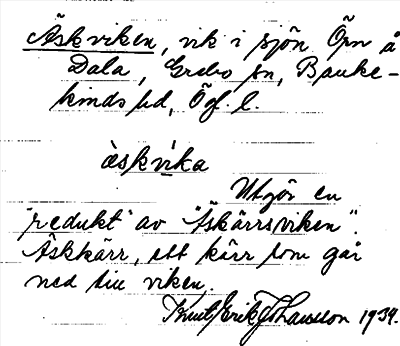 Äskviken, vik i sjön Örn å
Dala, Grebo sn, Banke-
kinds hd, Ög. l.
äskvika
Utgör en
"redukt" av "Äskärrsviken".
Äskkärr, ett kärr som går
ned till viken.
Knut Erik Johansson 1934.